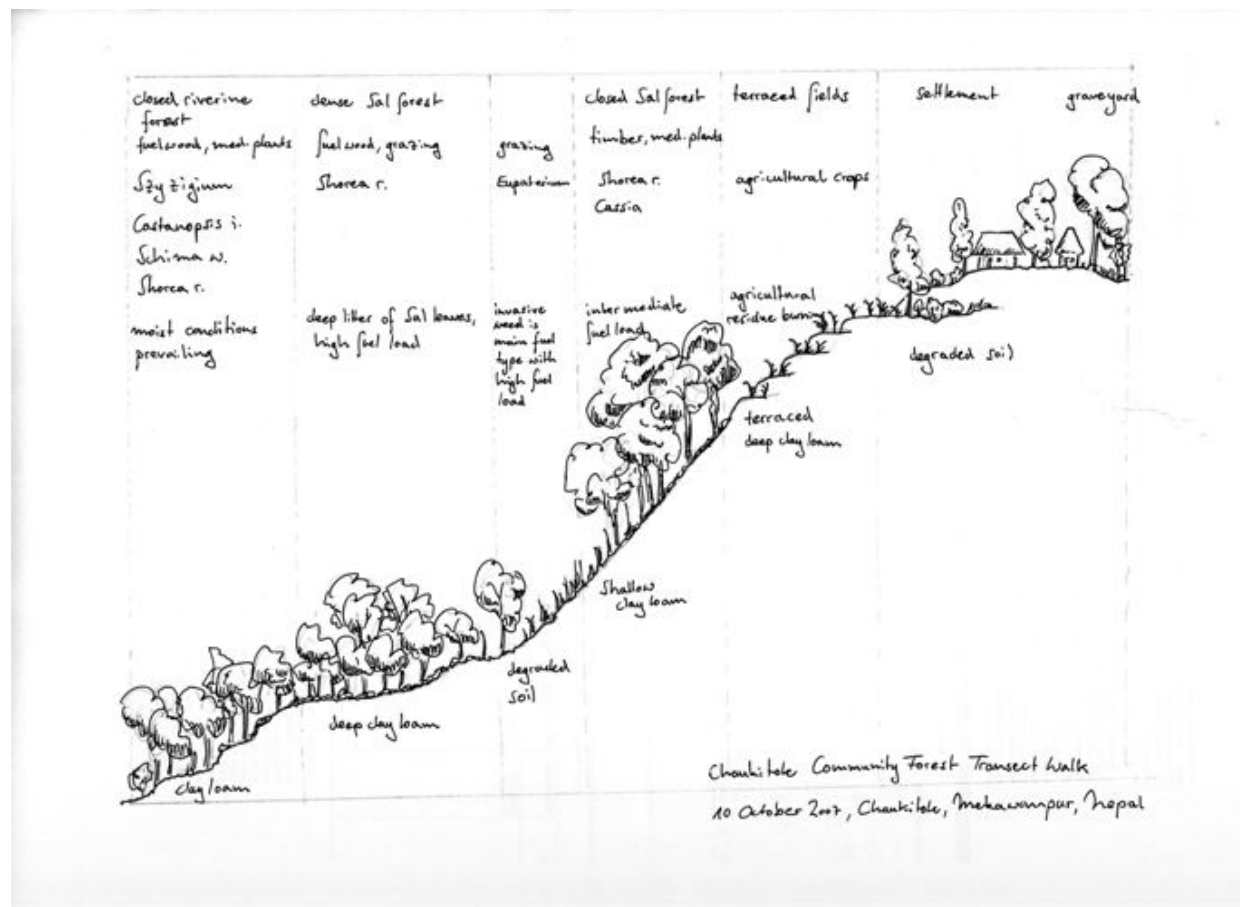 closed riverine
forest
fuelwood, med. plants
Szyzigium
Castanopsis i.
Schima w.
Shorea r.
moist conditions
prevailing
clay loam
dense Sal forest
fuelwood, grazing
Shorea r.
deep litter of Sal leaves,
high fuel load
deep clay loam
grazing
Eupatorium
invasive
weed is
main fuel
type with
high fuel
load
degraded
soil
closed Sal forest
timber, med. plants
Shorea r.
Cassia
intermediate
fuel load
Shallow
clay loam
terraced fields
agricultural crops
agricultural
residue burning
terraced
deep clay loam
settlement
graveyard
degraded soil
Chaukitole Community Forest Transect Walk
10 October 2007, Chaukitole, Makawanpur, Nepal